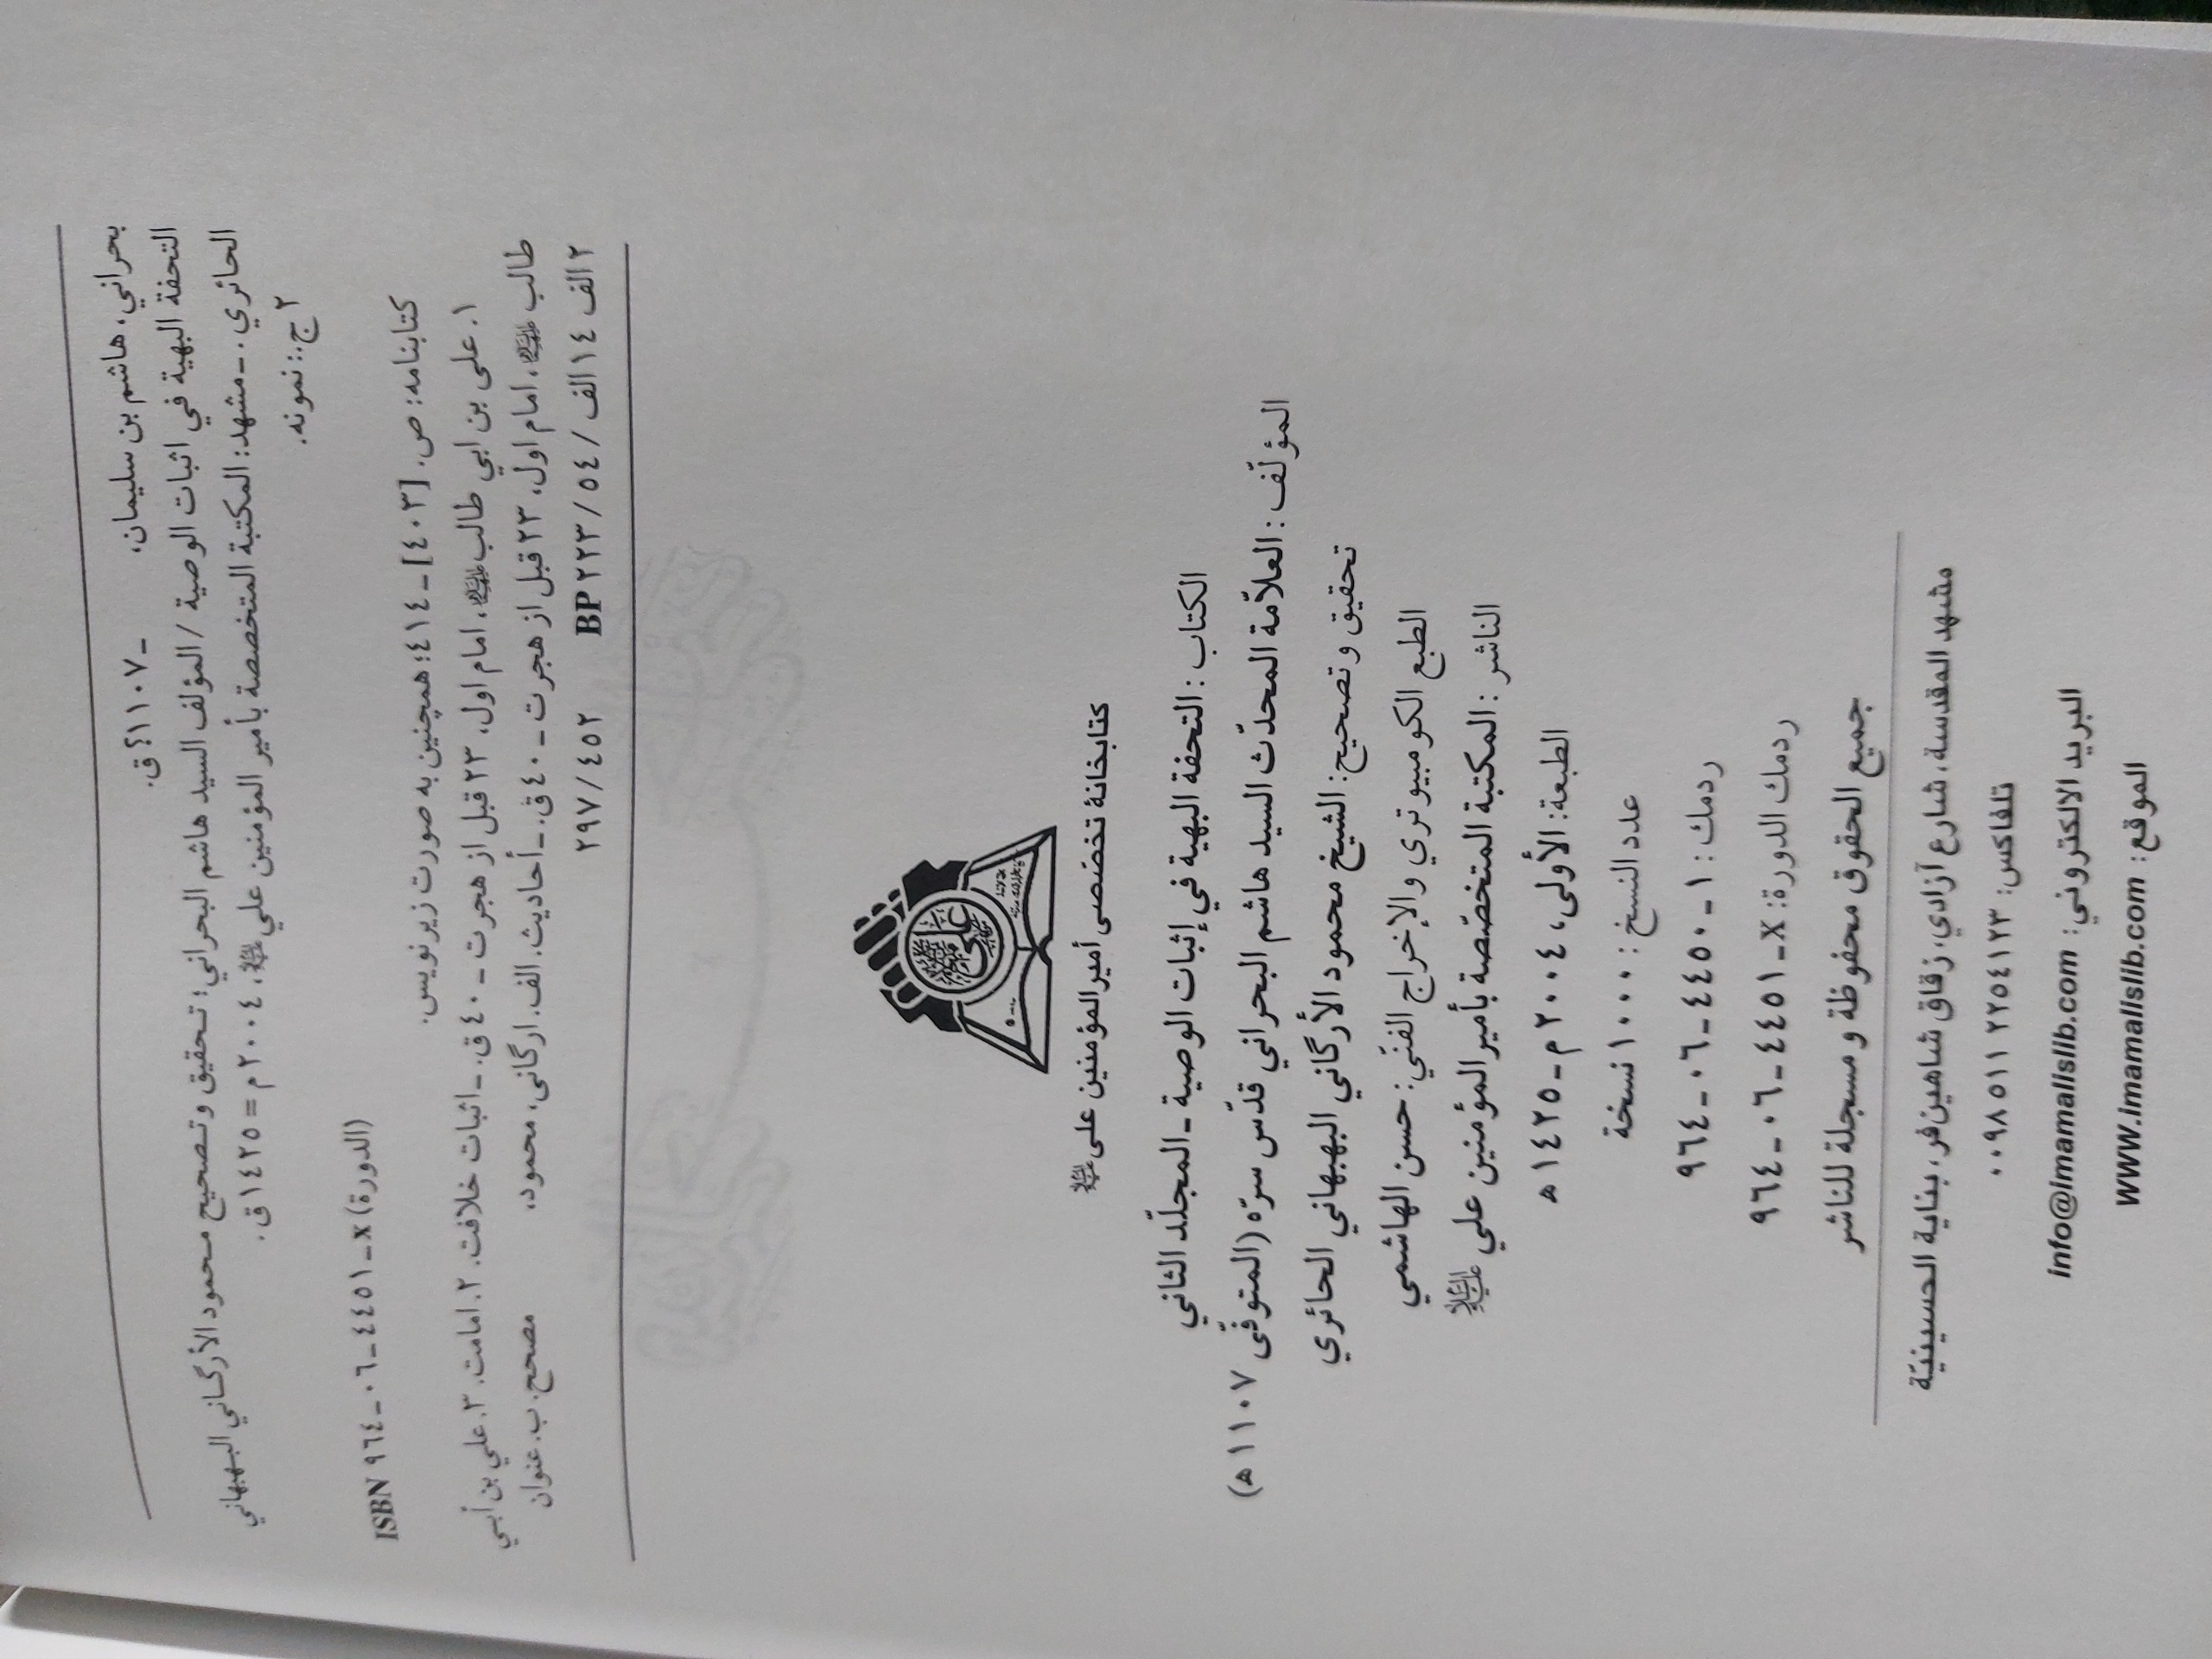 بحراني، هاشم بن سليمان، - ١١٠٧؟ ق.
التحفة البهية في اثبات الوصية / المؤلف السيد هاشم البحراني؛ تحقيق وتصحيح محمود الأركاني البهبهاني
الحائري. ـ مشهد: المكتبة المتخصصة بأمير المؤمنين علي ﷺ، ٢٠٠٤ م = ١٤٢٥ ق.
٢ ج.: نمونه.
ISBN ٩٦٤-٠٦-٤٤٥١-X (الدورة)
كتابنامه: ص. [٤٠٣] - ٤١٤؛ همچنين به صورت زيرنويس.
١. على بن ابي طالب ﷺ، امام اول، ٢٣ قبل از هجرت - ٤٠ ق. ـ اثبات خلافت. ٢. امامت. ٣. علي بن أبي
طالب ﷺ، امام اول، ٢٣ قبل از هجرت - ٤٠ ق. ـ أحاديث. الف. اركانى، محمود، مصحح. ب. عنوان
٢ الف ١٤ الف / ٥٤ / ٢٢٣ BP ٤٥٢ / ٢٩٧
على
كتابخانهٔ تخصّصى أميرالمؤمنين على ﷺ
الكتاب : التحفة البهية في إثبات الوصية ـ المجلّد الثاني
المؤلّف : العلاّمة المحدّث السيد هاشم البحراني قدّس سرّه (المتوفّى ١١٠٧ ه)
تحقيق و تصحيح: الشيخ محمود الأركاني البهبهاني الحائري
الطبع الكومبيوتري والإخراج الفنّي: حسن الهاشمي
الناشر : المكتبة المتخصّصة بأميرالمؤمنين علي ﷺ
الطبعة: الأولى، ٢٠٠٤ م-١٤٢٥ ه
عدد النسخ : ١٠٠٠ نسخة
ردمك : ١-٤٤٥٠-٠٦-٩٦٤
ردمك الدورة: X-٤٤٥١-٠٦-٩٦٤
جميع الحقوق محفوظة و مسجلة للناشر
مشهد المقدسة، شارع آزادي، زقاق شاهين‌فر، بناية الحسينيّة
تلفاكس: ٢٢٥٤١٢٣ ٠٠٩٨٥١١
البريد الالكتروني: info@imamalislib.com
الموقع: www.imamalislib.com